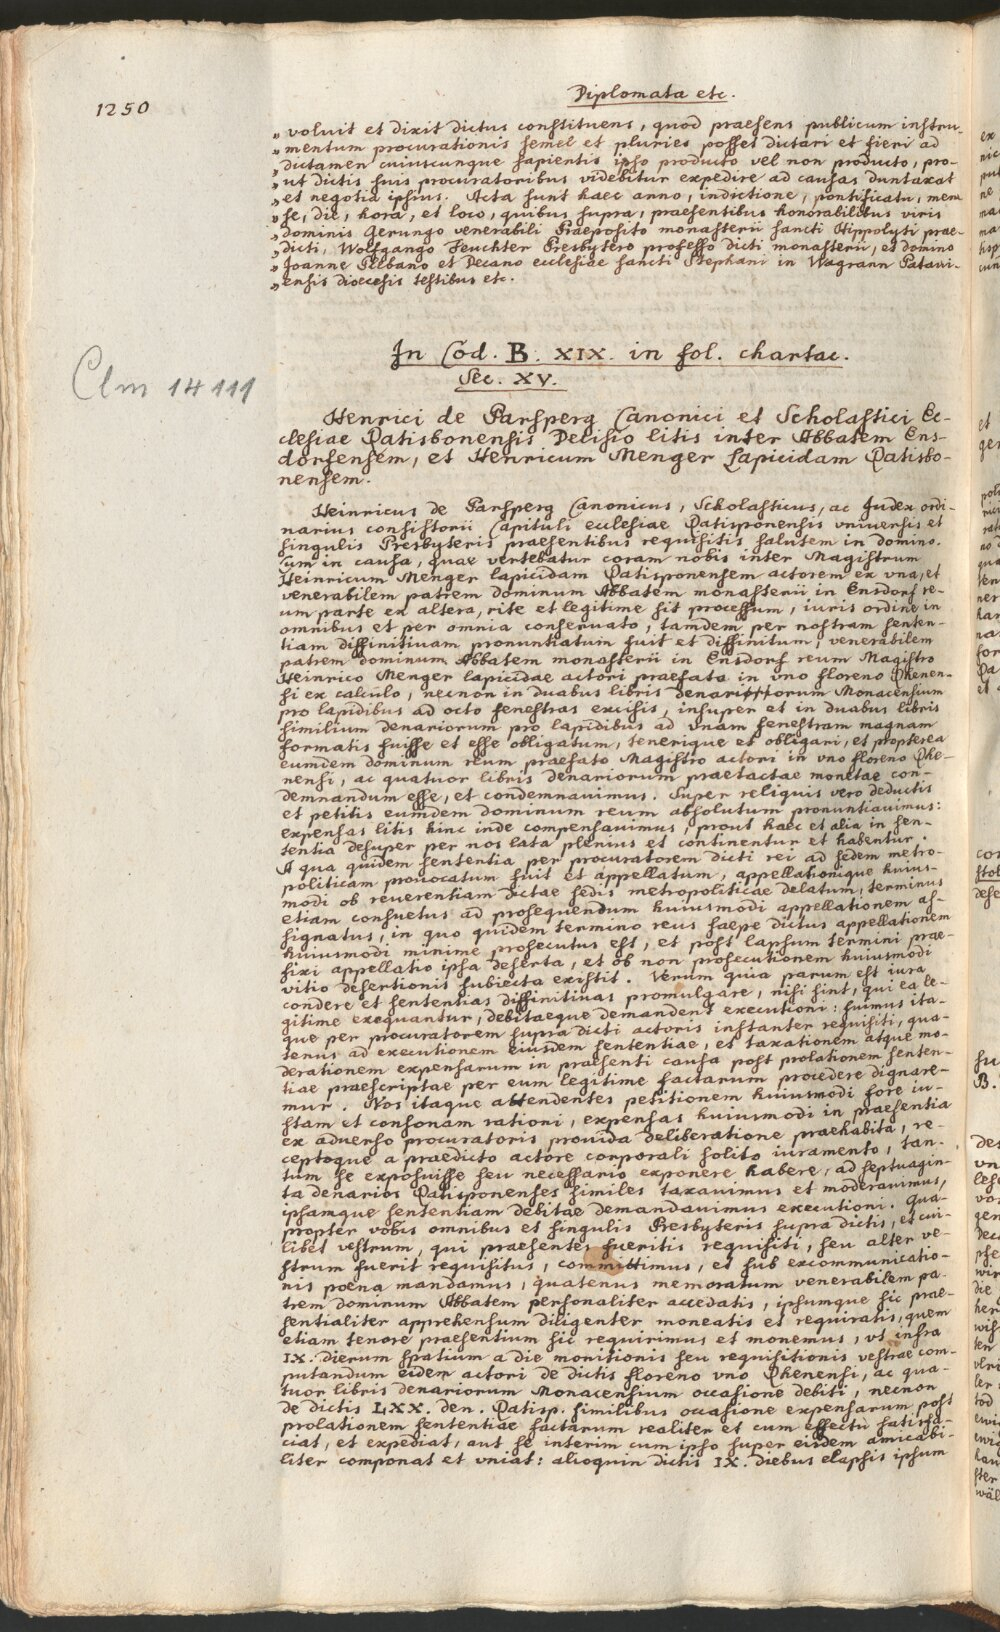 1250
Diplomata etc.
„ voluit et dixit dictus constituens, quod praesens publicum instru-
„ mentum procurationis semel et pluries posset dictari et fieri ad
„ dictamen cuiuscunque sapientis ipso producto vel non producto, pro-
„ ut dictis suis procuratoribus videbitur expedire ad causas duntaxat
„ et negotia ipsius. Acta sunt haec anno, indictione, pontificatu, men-
„ se, die, hora, et loco, quibus supra, praesentibus honorabilibus viris
„ dominis Gerungo venerabili Praeposito monasterii sancti Hippolyti prae-
„ dicti, Wolfgango Feuchter Presbytero professo dicti monasterii, et domino
„ Joanne Plebano et Decano ecclesiae sancti Stephani in Wagrann Patavi-
„ ensis dioecesis testibus etc.
In Cod. B. XIX. in fol. chartac.
Sec. XV.
Clm 14111
Henrici de Parsperg Canonici et Scholastici Ec-
clesiae Ratisbonensis Decisio litis inter Abbatem Ens-
dorfensem, et Henricum Menger Lapicidam Ratisbo-
nensem.
Heinricus de Parsperg Canonicus, Scholasticus, ac Judex ordi-
narius consistorii Capituli ecclesiae Ratisponensis vniuersis et
singulis Presbyteris praesentibus requisitis salutem in domino.
Cum in causa, quae vertebatur coram nobis inter Magistrum
Heinricum Menger lapicidam Ratisponensem actorem ex vna, et
venerabilem patrem dominum Abbatem monasterii in Ensdorf re-
um parte ex altera, rite et legitime sit processum, iuris ordine in
omnibus et per omnia conseruato, tamdem per nostram senten-
tiam diffinitiuam pronuntiatum fuit et diffinitum, venerabilem
patrem dominum Abbatem monasterii in Ensdorf reum Magistro
Heinrico Menger lapicidae actori praefato in vno floreno Rhenen-
si ex calculo, necnon in duabus libris denariorum Monacensium
pro lapidibus ad octo fenestras excisis, insuper et in duabus libris
similium denariorum pro lapidibus ad vnam fenestram magnam
formatis fuisse et esse obligatum, tenerique et obligari, et propterea
eumdem dominum reum praefato Magistro actori in vno floreno Rhe-
nensi, ac quatuor libris denariorum praetactae monetae con-
demnandum esse, et condemnauimus. Super reliquis vero deductis
et petitis eumdem dominum reum absolutum pronuntiauimus:
expensas litis hinc inde compensauimus, prout haec et alia in sen-
tentia desuper per nos lata plenius et continentur et habentur.
A qua quidem sententia per procuratorem dicti rei ad sedem metro-
politicam prouocatum fuit et appellatum, appellationique huius-
modi ob reuerentiam dictae sedis metropoliticae delatum, terminus
etiam consuetus ad prosequendum huiusmodi appellationem as-
signatus, in quo quidem termino reus saepe dictus appellationem
huiusmodi minime prosecutus est, et post lapsum termini prae-
fixi appellatio ipsa deserta, et ob non prosecutionem huiusmodi
vitio desertionis subiecta existit. Verum quia parum est iura
condere et sententias diffinitiuas promulgare, nisi sint, qui ea le-
gitime exequantur, debitaeque demandent executioni: fuimus ita-
que per procuratorem supra dicti actoris instanter requisiti, qua-
tenus ad executionem eiusdem sententiae, et taxationem atque mo-
derationem expensarum in praesenti causa post prolationem senten-
tiae praescriptae per eum legitime factarum procedere dignare-
mur. Nos itaque attendentes petitionem huiusmodi fore iu-
stam et consonam rationi, expensas huiusmodi in praesentia
ex aduerso procuratoris prouida deliberatione praehabita, re-
ceptoque a praedicto actore corporali solito iuramento, tan-
tum se exposuisse seu necessario exponere habere, ad septuagin-
ta denarios Ratisponenses similes taxauimus et moderauimus,
ipsamque sententiam debitae demandauimus executioni. Qua-
propter vobis omnibus et singulis Presbyteris supra dictis, et cui-
libet vestrum, qui praesentes fueritis requisiti, seu alter ve-
strum fuerit requisitus, committimus, et sub excommunicatio-
nis poena mandamus, quatenus memoratum venerabilem pa-
trem dominum Abbatem personaliter accedatis, ipsumque sic prae-
sentialiter apprehensum diligenter moneatis et requiratis, quem
etiam tenore praesentium sic requirimus et monemus, vt infra
IX. dierum spatium a die monitionis seu requisitionis vestrae com-
putandum eidem actori de dictis floreno vno Rhenensi, ac qua-
tuor libris denariorum Monacensium occasione debiti, necnon
de dictis LXX. den. Ratisp. similibus occasione expensarum post
prolationem sententiae factarum realiter et cum effectu satisfa-
ciat, et expediat, aut se interim cum ipso super eisdem amicabi-
liter componat et vniat: alioquin dictis IX. diebus elapsis ipsum